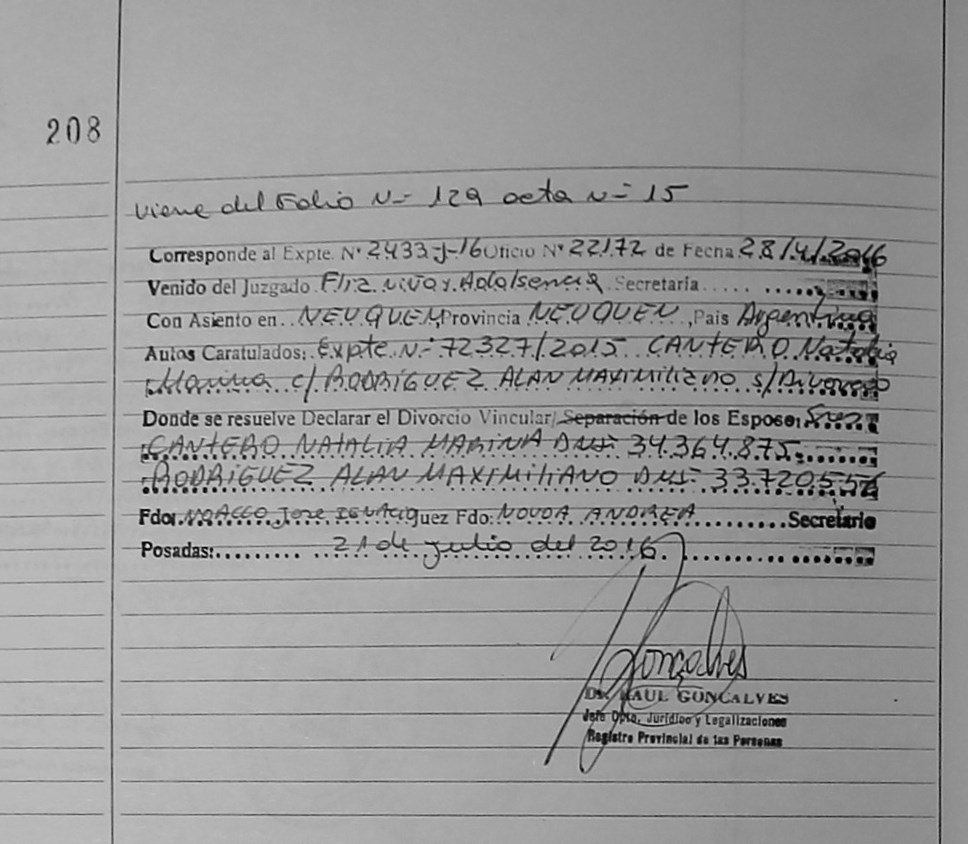 208
viene del Folio N- 129 acta N- 15
Corresponde al Expte. Nº 2433-J-16 Oficio Nº 22172 de Fecha 28/4/2016
Venido del Juzgado Flia. Niña y Adolsencia Secretaria
Con Asiento en NEUQUEN, Provincia NEUQUEN, Pais Argentina
Autos Caratulados: Expte N- 72327/2015 CANTERO Natalia
Marina c/ RODRIGUEZ ALAN MAXIMILIANO s/ Divorcio
Donde se resuelve Declarar el Divorcio Vincular/ Separación de los Esposo:
CANTERO NATALIA MARINA DNI- 34.364.875.
RODRIGUEZ ALAN MAXIMILIANO DNI- 33.720.556
Fdo: Jose Ignacio Juez Fdo: NOVOA ANDREA Secretario
Posadas: 21 de julio del 2016
Gonçalves
Dr. RAUL GONCALVES
Jefe Dpto. Jurídico y Legalizaciones
Registro Provincial de las Personas